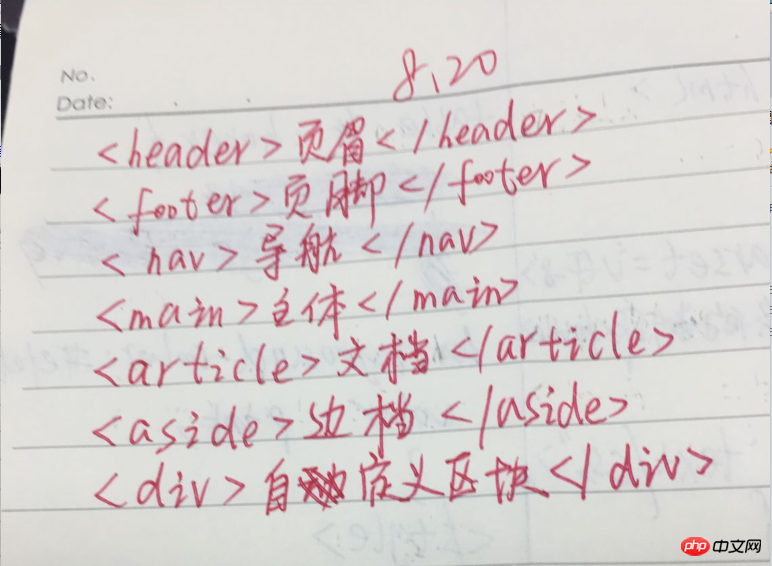 No.
8、20
Date:
<header>页眉</header>
<footer>页脚</footer>
<nav>导航</nav>
<main>主体</main>
<article>文档</article>
<aside>边档</aside>
<div>自定义区块</div>
php 中文网